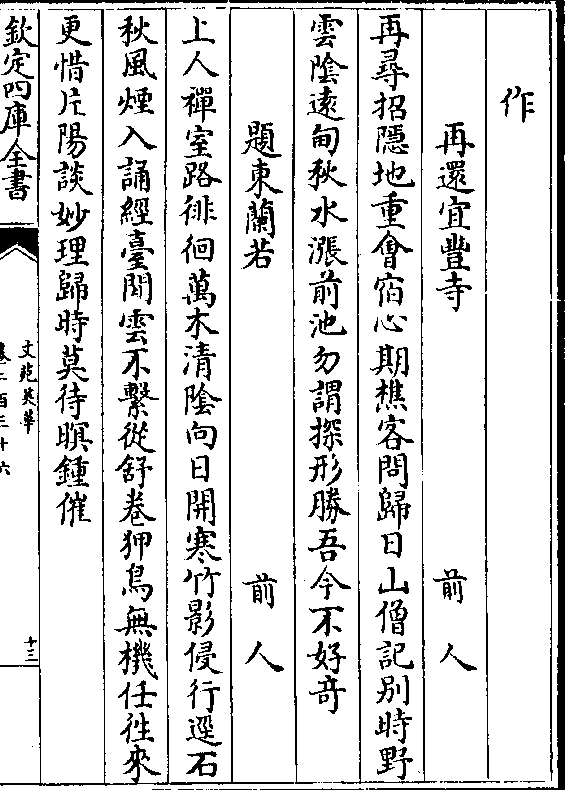 作
再還宜豐寺 前人
再尋招隱地重會宿心期樵客問歸日山僧記別時野
雲陰遠甸秋水漲前池勿謂探形勝吾今不好竒
題東蘭若 前人
上人禪室路徘徊萬木清陰向日開寒竹影侵行逕石
秋風煙入誦經臺閒雲不繫從舒卷狎鳥無機任徃來
更惜片陽談妙理歸時莫待暝鍾催
欽定四庫全書
文苑英華
卷二百三十六
十三